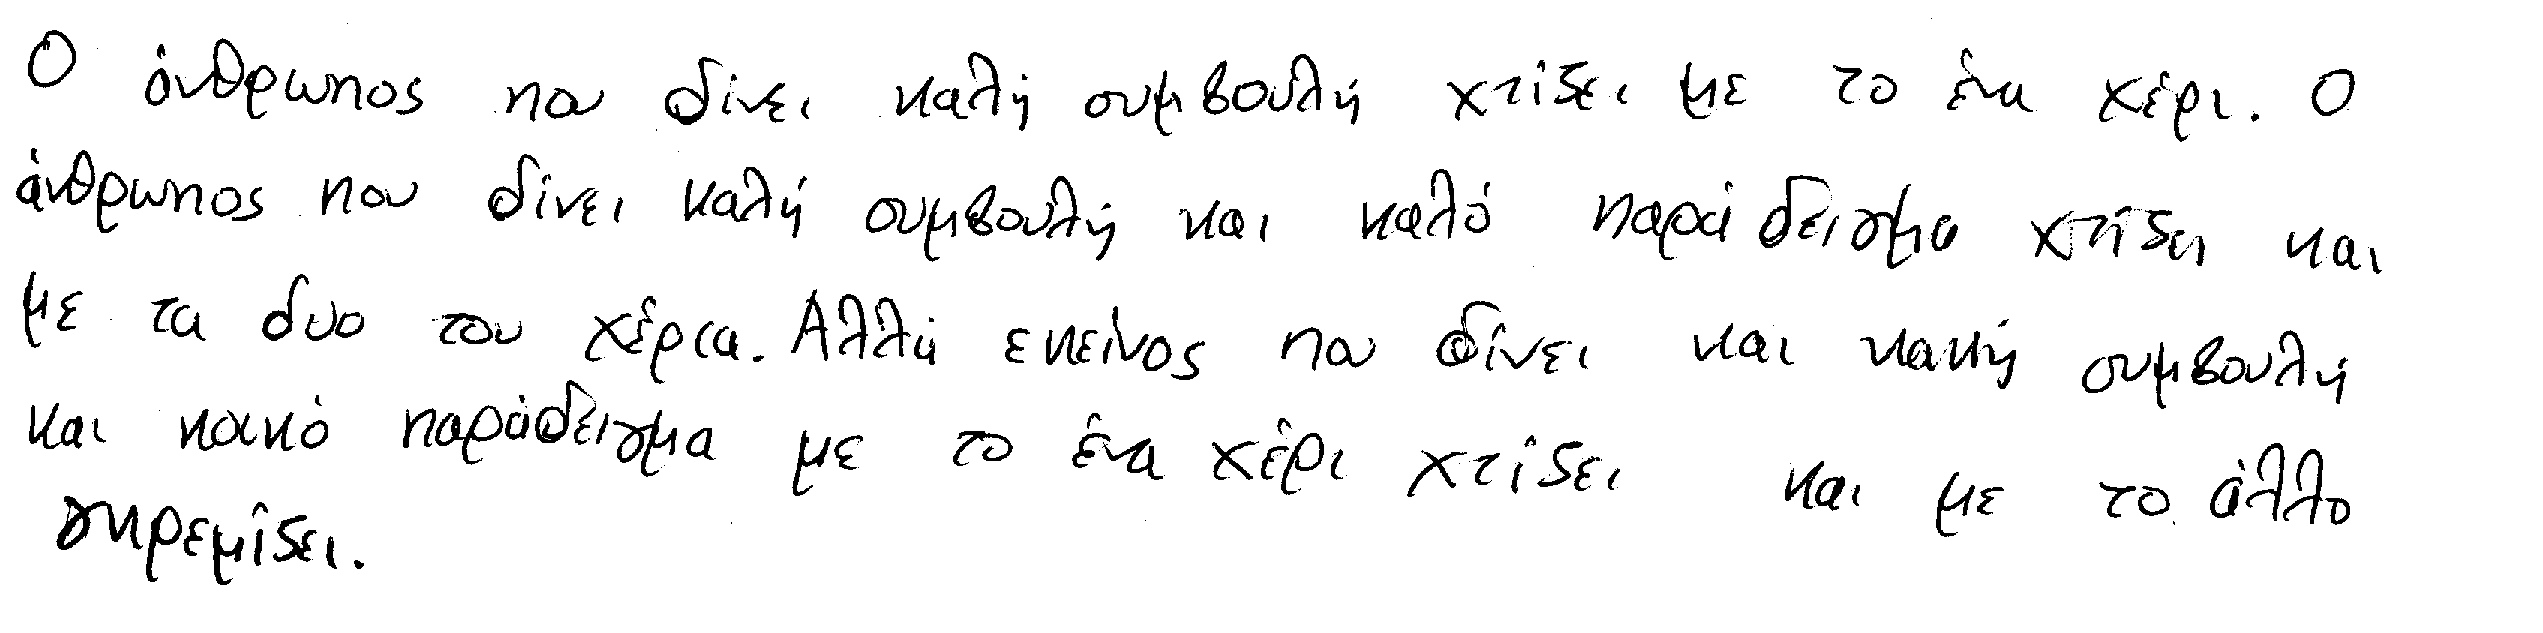 Ο άνθρωπος που δίνει καλή συμβουλή χτίζει με το ένα χέρι. Ο
άνθρωπος που δίνει καλή συμβουλή και καλό παράδειγμα χτίζει και
με τα δυο του χέρια. Αλλά εκείνος που δίνει και κακή συμβουλή
και κακό παράδειγμα με το ένα χέρι χτίζει και με το άλλο
γκρεμίζει.